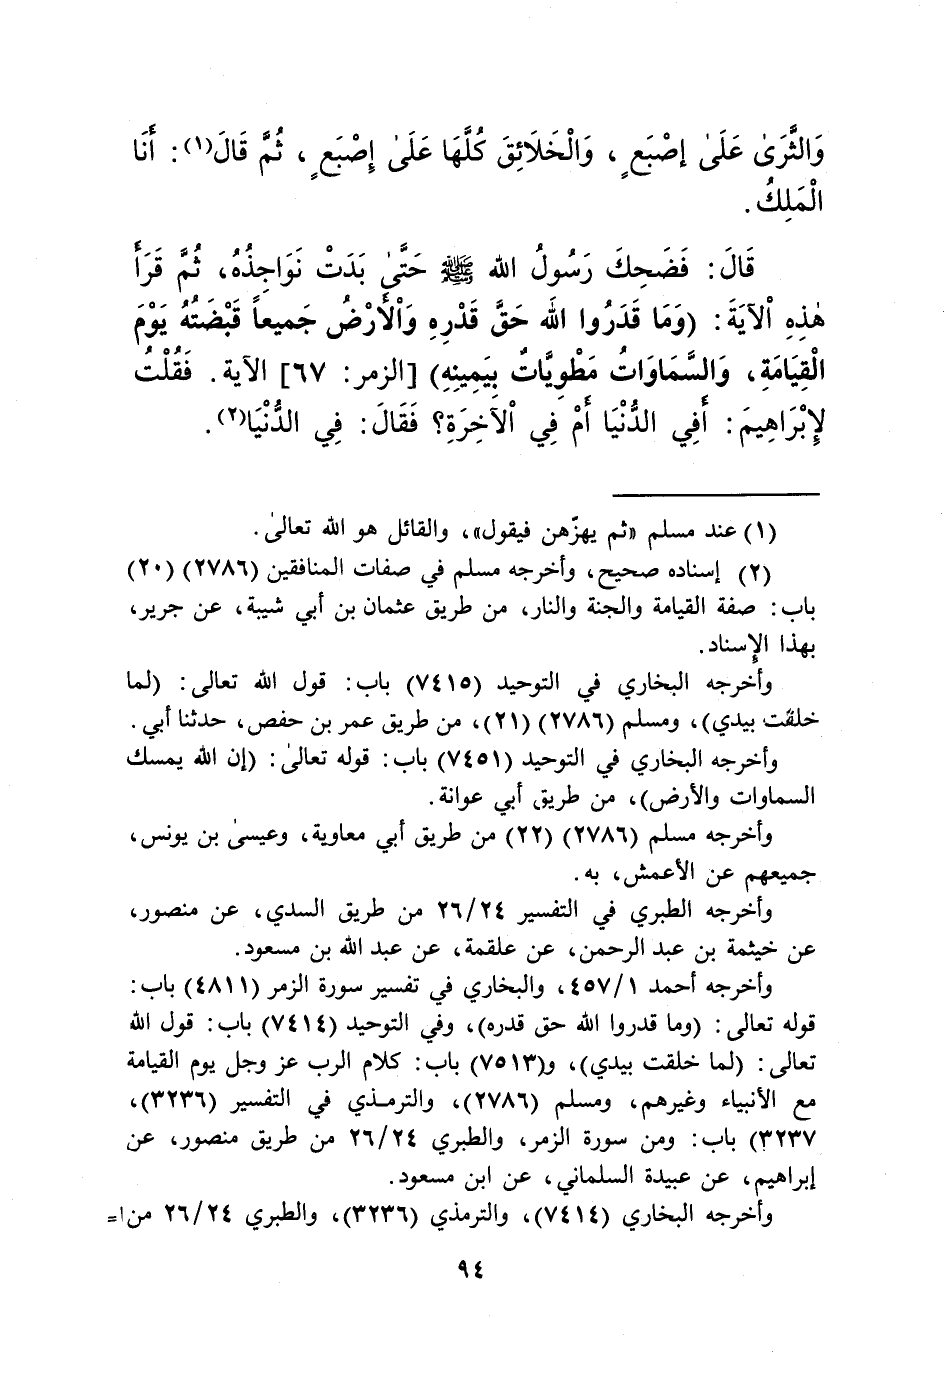 وَالثَّرَىٰ عَلَىٰ إِصْبَعٍ، وَالْخَلَائِقَ كُلَّهَا عَلَىٰ إِصْبَعٍ، ثُمَّ قَالَ(١): أَنَا
الْمَلِكُ.
قَالَ: فَضَحِكَ رَسُولُ الله ﷺ حَتَّىٰ بَدَتْ نَوَاجِذُهُ، ثُمَّ قَرَأَ
هٰذِهِ الْآيَةَ: (وَمَا قَدَرُوا اللهَ حَقَّ قَدْرِهِ وَالْأَرْضُ جَمِيعاً قَبْضَتُهُ يَوْمَ
الْقِيَامَةِ، وَالسَّمَاوَاتُ مَطْوِيَّاتٌ بِيَمِينِهِ) [الزمر: ٦٧] الآية. فَقُلْتُ
لِإِبْرَاهِيمَ: أَفِي الدُّنْيَا أَمْ فِي الْآخِرَةِ؟ فَقَالَ: فِي الدُّنْيَا(٢).
(١) عند مسلم «ثم يهزّهن فيقول»، والقائل هو الله تعالىٰ.
(٢) إسناده صحيح، وأخرجه مسلم في صفات المنافقين (٢٧٨٦) (٢٠)
باب: صفة القيامة والجنة والنار، من طريق عثمان بن أبي شيبة، عن جرير،
بهذا الإسناد.
وأخرجه البخاري في التوحيد (٧٤١٥) باب: قول الله تعالى: (لما
خلقت بيدي)، ومسلم (٢٧٨٦) (٢١)، من طريق عمر بن حفص، حدثنا أبي.
وأخرجه البخاري في التوحيد (٧٤٥١) باب: قوله تعالىٰ: (إن الله يمسك
السماوات والأرض)، من طريق أبي عوانة.
وأخرجه مسلم (٢٧٨٦) (٢٢) من طريق أبي معاوية، وعيسىٰ بن يونس،
جميعهم عن الأعمش، به.
وأخرجه الطبري في التفسير ٢٦/٢٤ من طريق السدي، عن منصور،
عن خيثمة بن عبد الرحمن، عن علقمة، عن عبد الله بن مسعود.
وأخرجه أحمد ٤٥٧/١، والبخاري في تفسير سورة الزمر (٤٨١١) باب:
قوله تعالى: (وما قدروا الله حق قدره)، وفي التوحيد (٧٤١٤) باب: قول الله
تعالى: (لما خلقت بيدي)، و(٧٥١٣) باب: كلام الرب عز وجل يوم القيامة
مع الأنبياء وغيرهم، ومسلم (٢٧٨٦)، والترمذي في التفسير (٣٢٣٦)،
٣٢٣٧) باب: ومن سورة الزمر، والطبري ٢٦/٢٤ من طريق منصور، عن
إبراهيم، عن عبيدة السلماني، عن ابن مسعود.
وأخرجه البخاري (٧٤١٤)، والترمذي (٣٢٣٦)، والطبري ٢٦/٢٤ من=
٩٤